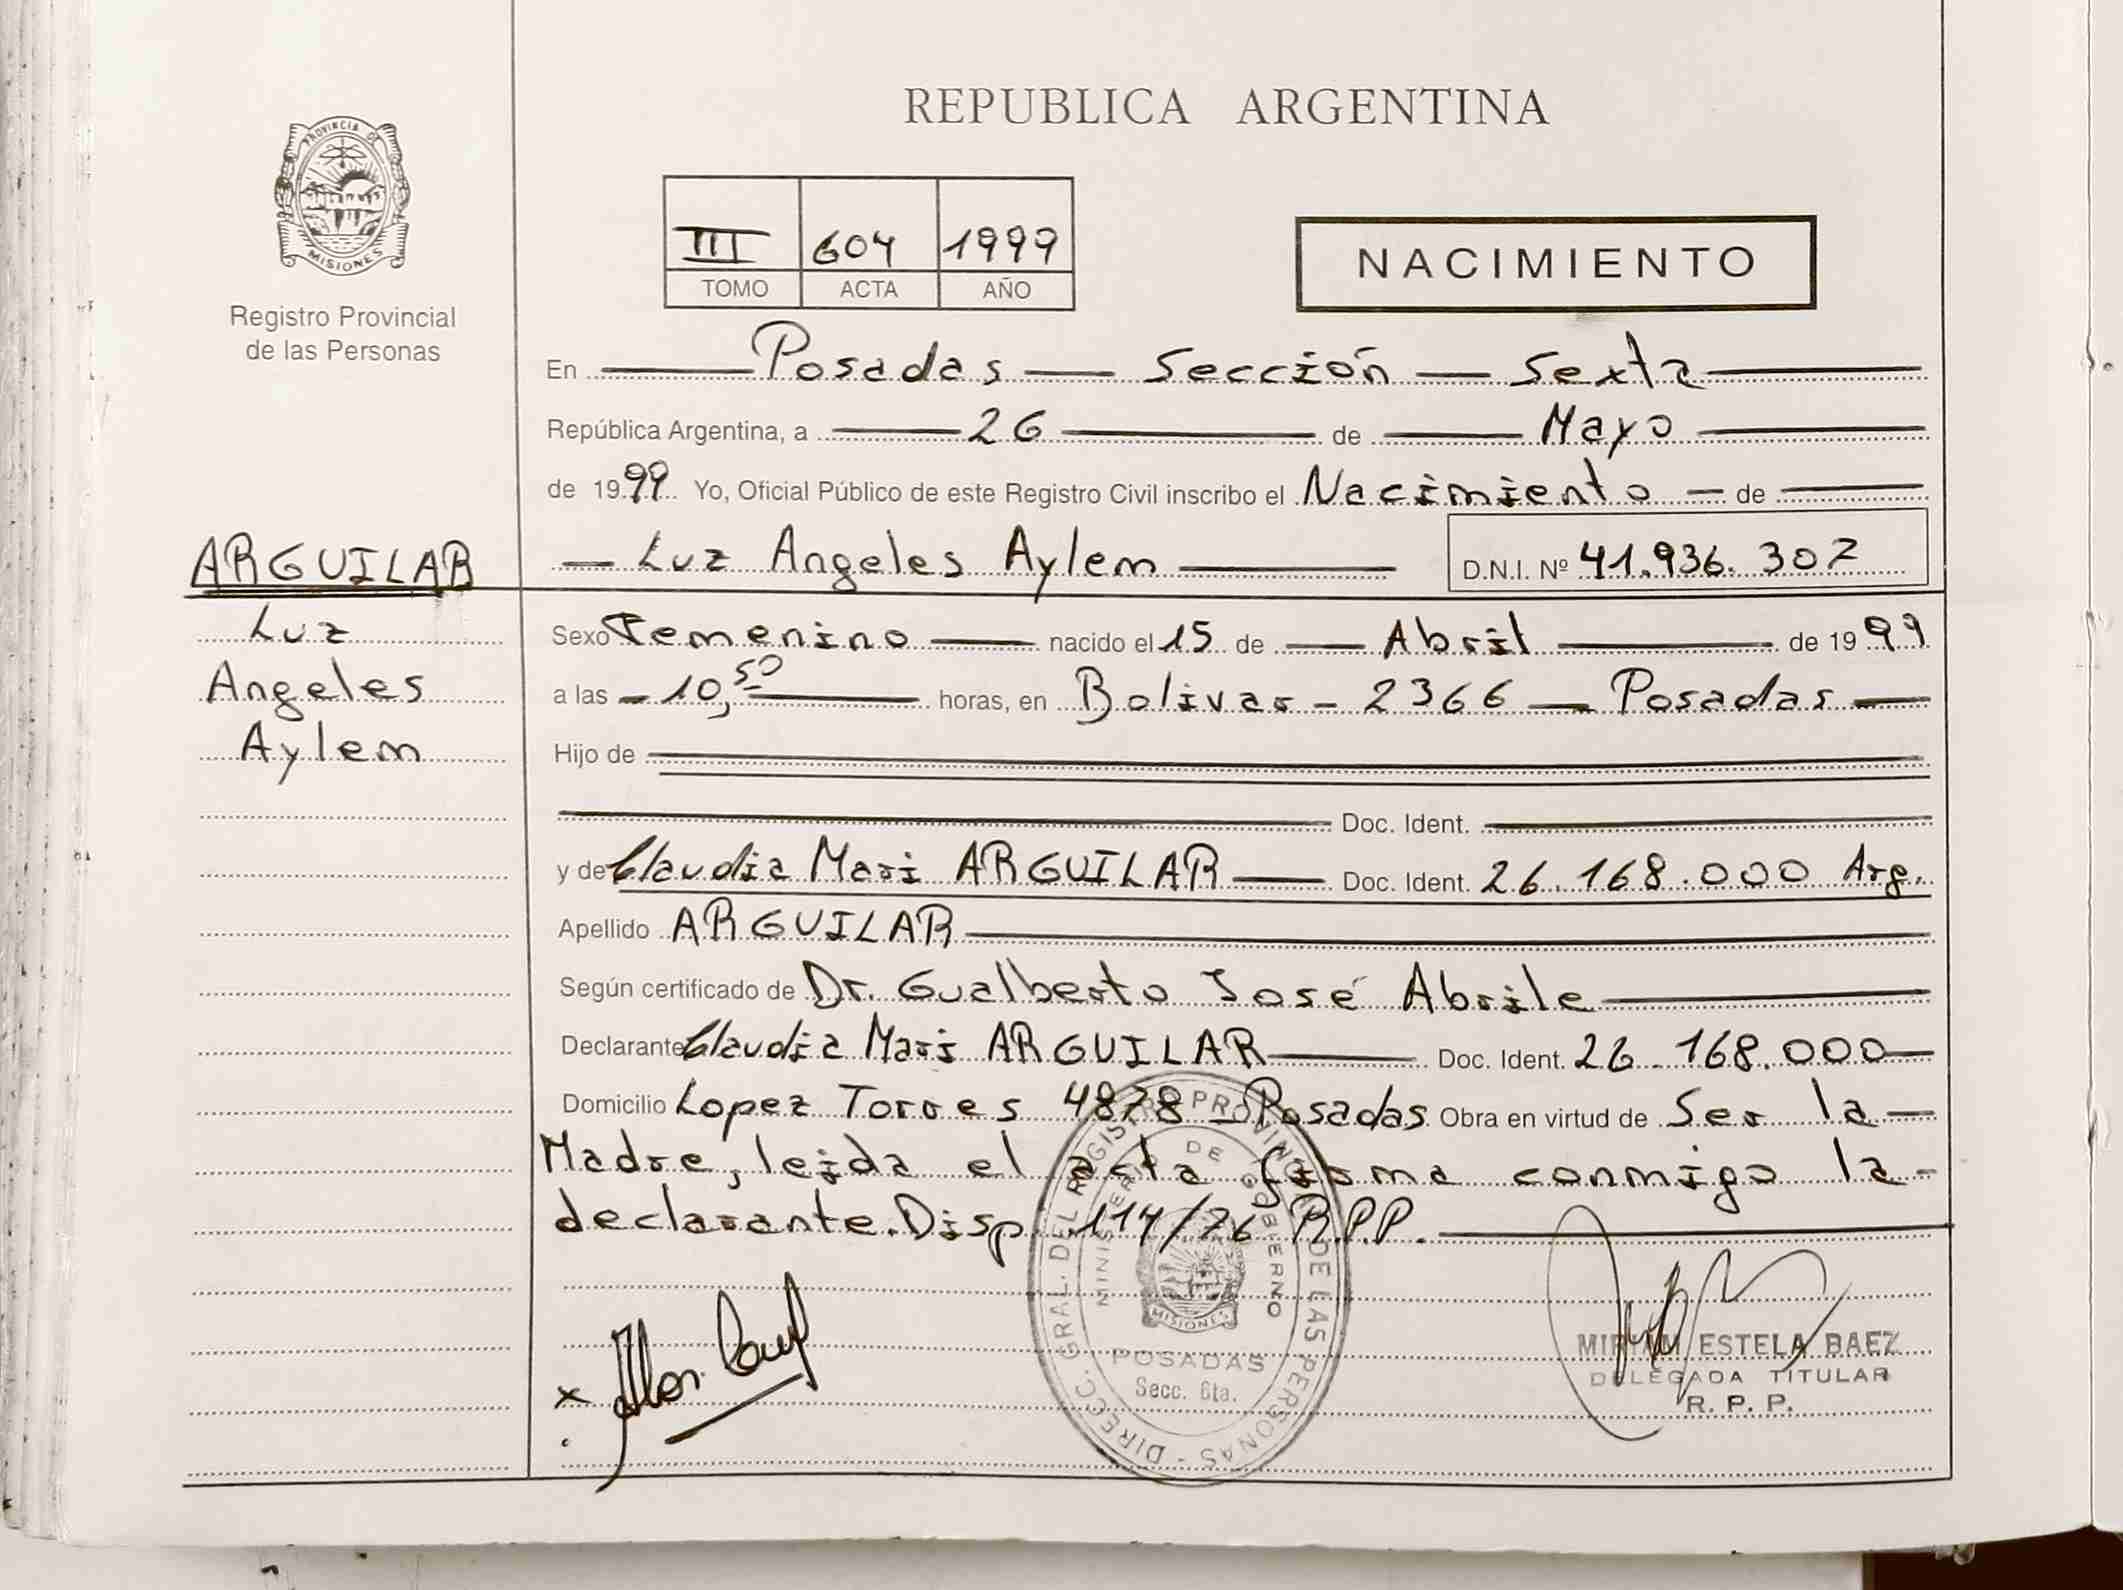 REPUBLICA ARGENTINA
PROVINCIA DE
MISIONES
Registro Provincial
de las Personas
III 604 1999
TOMO ACTA AÑO
NACIMIENTO
En Posadas — Sección — Sexta
República Argentina, a 26 de Mayo
de 1999 Yo, Oficial Público de este Registro Civil inscribo el Nacimiento — de
ARGUILAR
— Luz Angeles Aylem D.N.I. Nº 41.936.307
Luz
Angeles
Aylem
Sexo Femenino nacido el 15 de Abril de 1999
a las - 10,50 horas, en Bolivar - 2366 — Posadas
Hijo de
Doc. Ident.
y de Claudia Mari ARGUILAR Doc. Ident. 26.168.000 Arg.
Apellido ARGUILAR
Según certificado de Dr. Gualberto José Abrile
Declarante Claudia Mari ARGUILAR Doc. Ident. 26.168.000
Domicilio Lopez Torres 4878 - Posadas Obra en virtud de Ser la
Madre, leida el acta firma conmigo la
declarante. Disp. 114/76 R.P.P.
DIRECC. GRAL. DEL REGISTRO PROVINCIAL DE LAS PERSONAS
MINISTERIO DE GOBIERNO
MISIONES
POSADAS
Secc. 6ta.
x
MIRYAM ESTELA BAEZ
DELEGADA TITULAR
R. P. P.